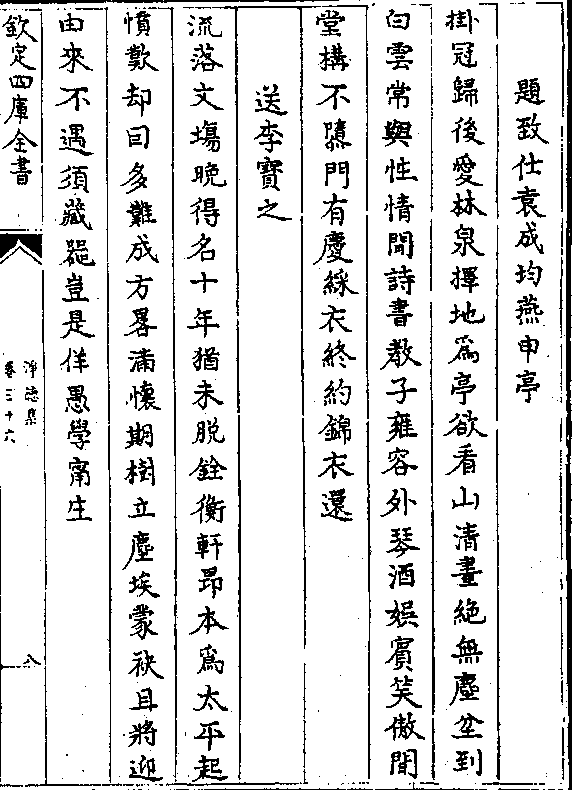 題致仕袁成均燕申亭
掛冠歸後愛林泉擇地爲亭欲看山清晝絶無塵坌到
白雲常與性情閒詩書教子雍容外琴酒娯賓笑傲間
堂搆不隳門有慶綵衣終約錦衣還
送李寳之
流落文塲晩得名十年猶未脱銓衡軒昂本爲太平起
憤歎却曰多難成方畧滿懷期樹立塵埃蒙袂且將迎
由來不遇須藏噐豈是佯愚學甯生
欽定四庫全書
淨德集
卷三十六
八